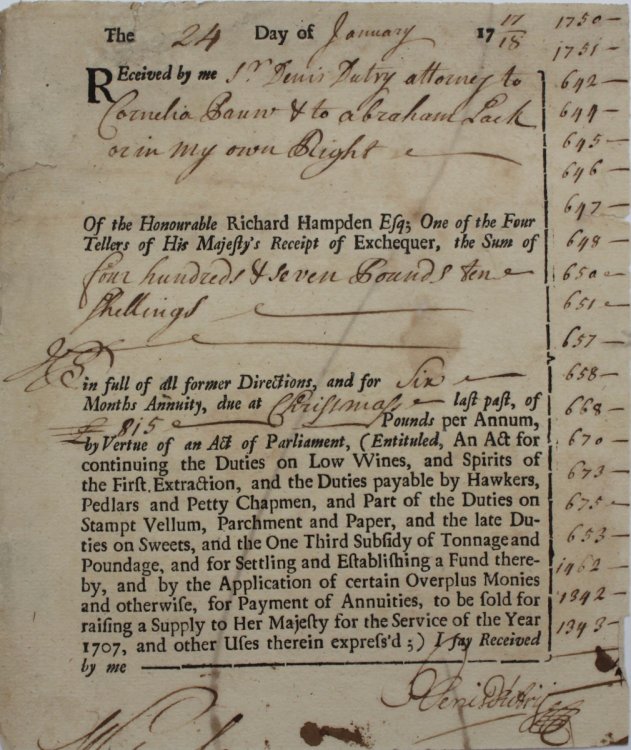 The 24 Day of January 17 17/18
REceived by me Sr. Denis Dutry attorney to
Cornelia Pauw & to abraham Lack
or in my own Right
Of the Honourable Richard Hampden Esq; One of the Four
Tellers of His Majeſty's Receipt of Exchequer, the Sum of
four hundreds & seven Pounds ten
shellings
in full of all former Directions, and for Six
Months Annuity, due at Christmass last past, of
£ 815 Pounds per Annum,
by Vertue of an Act of Parliament, (Entituled, An Act for
continuing the Duties on Low Wines, and Spirits of
the Firſt Extraction, and the Duties payable by Hawkers,
Pedlars and Petty Chapmen, and Part of the Duties on
Stampt Vellum, Parchment and Paper, and the late Du-
ties on Sweets, and the One Third Subſidy of Tonnage and
Poundage, and for Settling and Eſtabliſhing a Fund there-
by, and by the Application of certain Overplus Monies
and otherwiſe, for Payment of Annuities, to be ſold for
raiſing a Supply to Her Majeſty for the Service of the Year
1707, and other Uſes therein expreſs'd;) I ſay Received
by me
Denis Dutry
1750
1751
642
644
645
646
647
648
650
651
657
658
668
670
673
675
653
1462
1342
1343